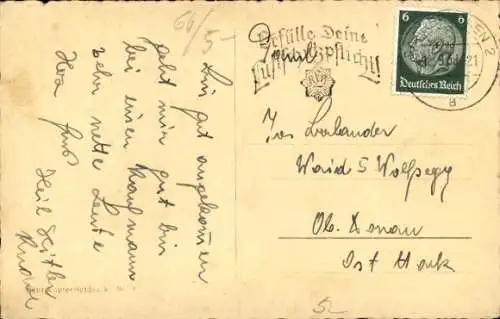 66/5-
Bin gut angekommen
geht mir gut bin
bei einen Kaufmann
sehr nette Leute
Heil Hitler
Erfülle Deine
Luftschutzpflicht!
6 6
Deutsches Reich
Jos
Waid 5 Wolfsegg
Ob. Donau
Ost Mark
5-